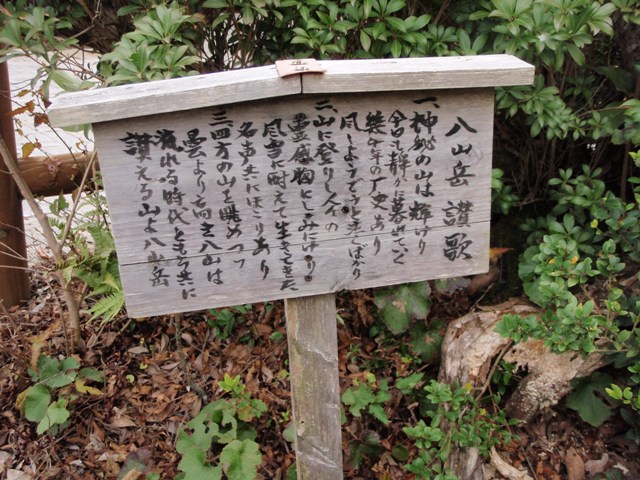 八山岳 讃歌
一、神秘の山は輝けり
今日も静か暮れて
幾千年の歴史あり
風
二、山に登りし人々の
霊感胸にしみにけり
風雪に耐えて生きてきた
名声共にほこりあり
三、四方の山を眺めつつ
雲より高き八山は
流れる時代ともに共に
讃える山よ八山岳